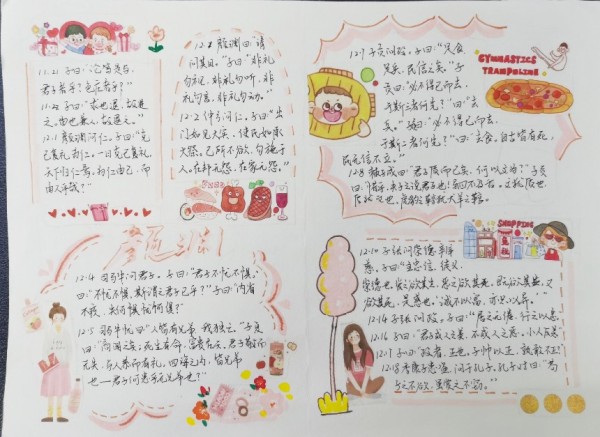 11.21 子曰:"论笃是与,
君子者乎?色庄者乎?"
11.22 子曰:"求也退,故进
之;由也兼人,故退之。"
12.1 颜渊问仁。子曰:"克
己复礼为仁。一日克己复礼,
天下归仁焉。为仁由己,而
由人乎哉?"
12.2 颜渊曰:"请
问其目。"子曰:"非礼
勿视,非礼勿听,非
礼勿言,非礼勿动。"
12.2 仲弓问仁。子曰:"出
门如见大宾,使民如承
大祭。己所不欲,勿施于
人。在邦无怨,在家无怨。"
颜渊
12.4 司马牛问君子。子曰:"君子不忧不惧。"
曰:"不忧不惧,斯谓之君子已乎?"子曰:"内省
不疚,夫何忧何惧?"
12.5 司马牛忧曰:"人皆有兄弟,我独亡。"子夏
曰:"商闻之矣:死生有命,富贵在天。君子敬而
无失,与人恭而有礼,四海之内,皆兄弟
也——君子何患乎无兄弟也?"
12.7 子贡问政。子曰:"足食,
足兵,民信之矣。"子
贡曰:"必不得已而去,
于斯三者何先?"曰:"去
兵。"曰:"必不得已而去,
于斯二者何先?"曰:"去食。自古皆有死,
民无信不立。"
GYMNASTICS
TRAMPOLINE
12.8 棘子成曰:"君子质而已矣,何以文为?"子贡
曰:"惜乎,夫子之说君子也!驷不及舌。文犹质也,
质犹文也,虎豹之鞟犹犬羊之鞟。"
SHOPPING
12.10 子张问崇德辨
惑。子曰:"主忠信,徙义,
崇德也。爱之欲其生,恶之欲其死。既欲其生,又
欲其死,是惑也。'诚不以富,亦祗以异。'"
12.14 子张问政。子曰:"居之无倦,行之以忠。"
12.16 子曰:"君子成人之美,不成人之恶。小人反是。"
12.17 子曰:"政者,正也。子帅以正,孰敢不正?"
12.18 季康子患盗,问于孔子。孔子对曰:"苟
子之不欲,虽赏之不窃。"